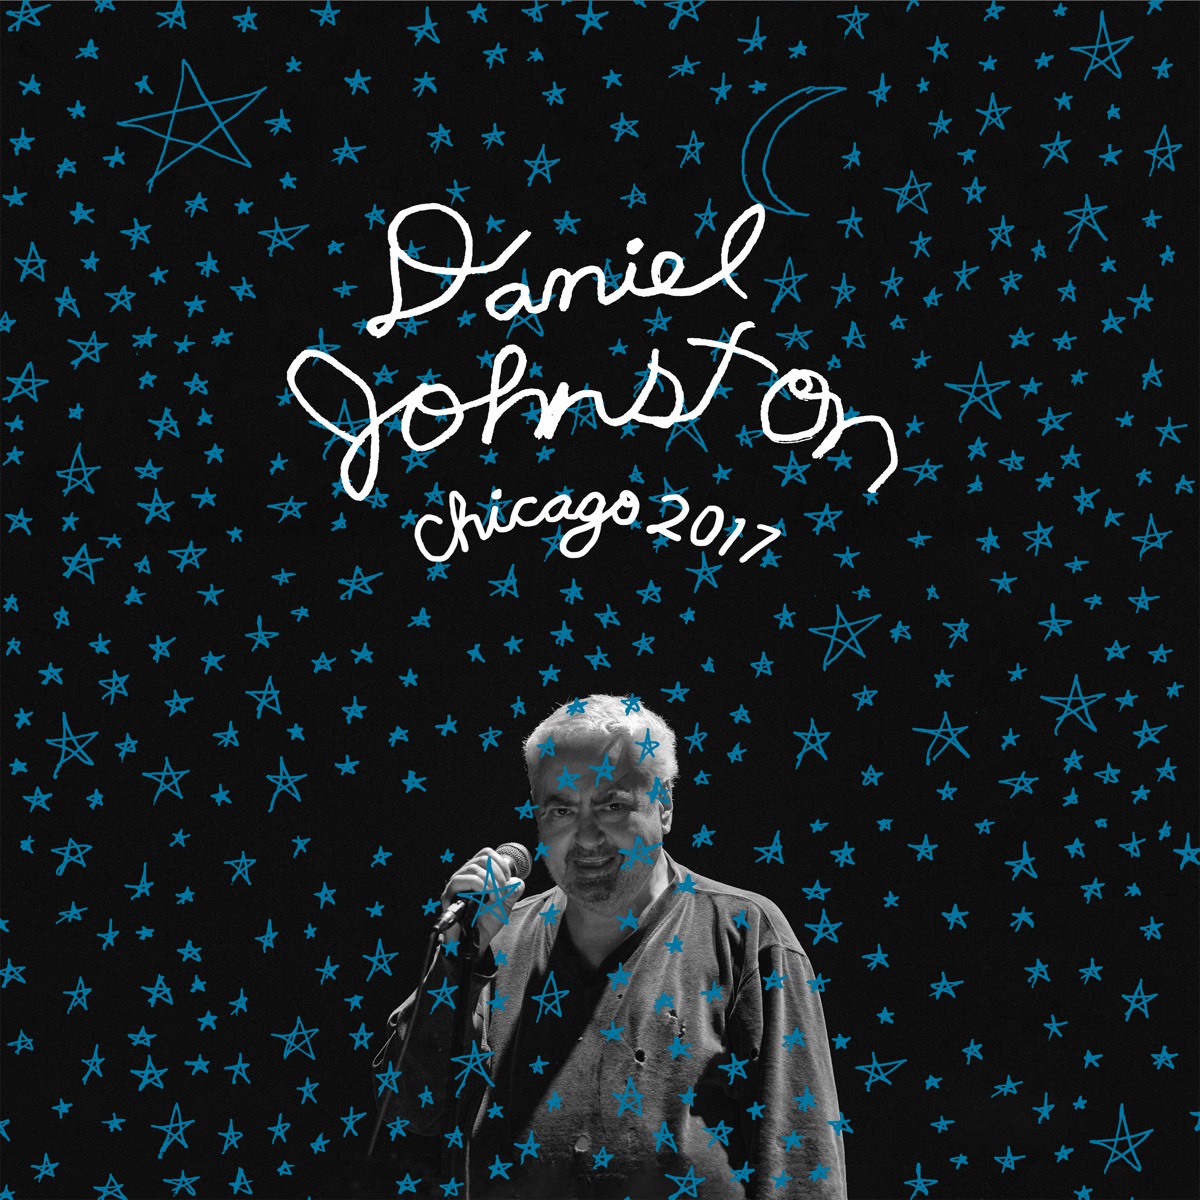 Daniel
Johnston
Chicago 2017